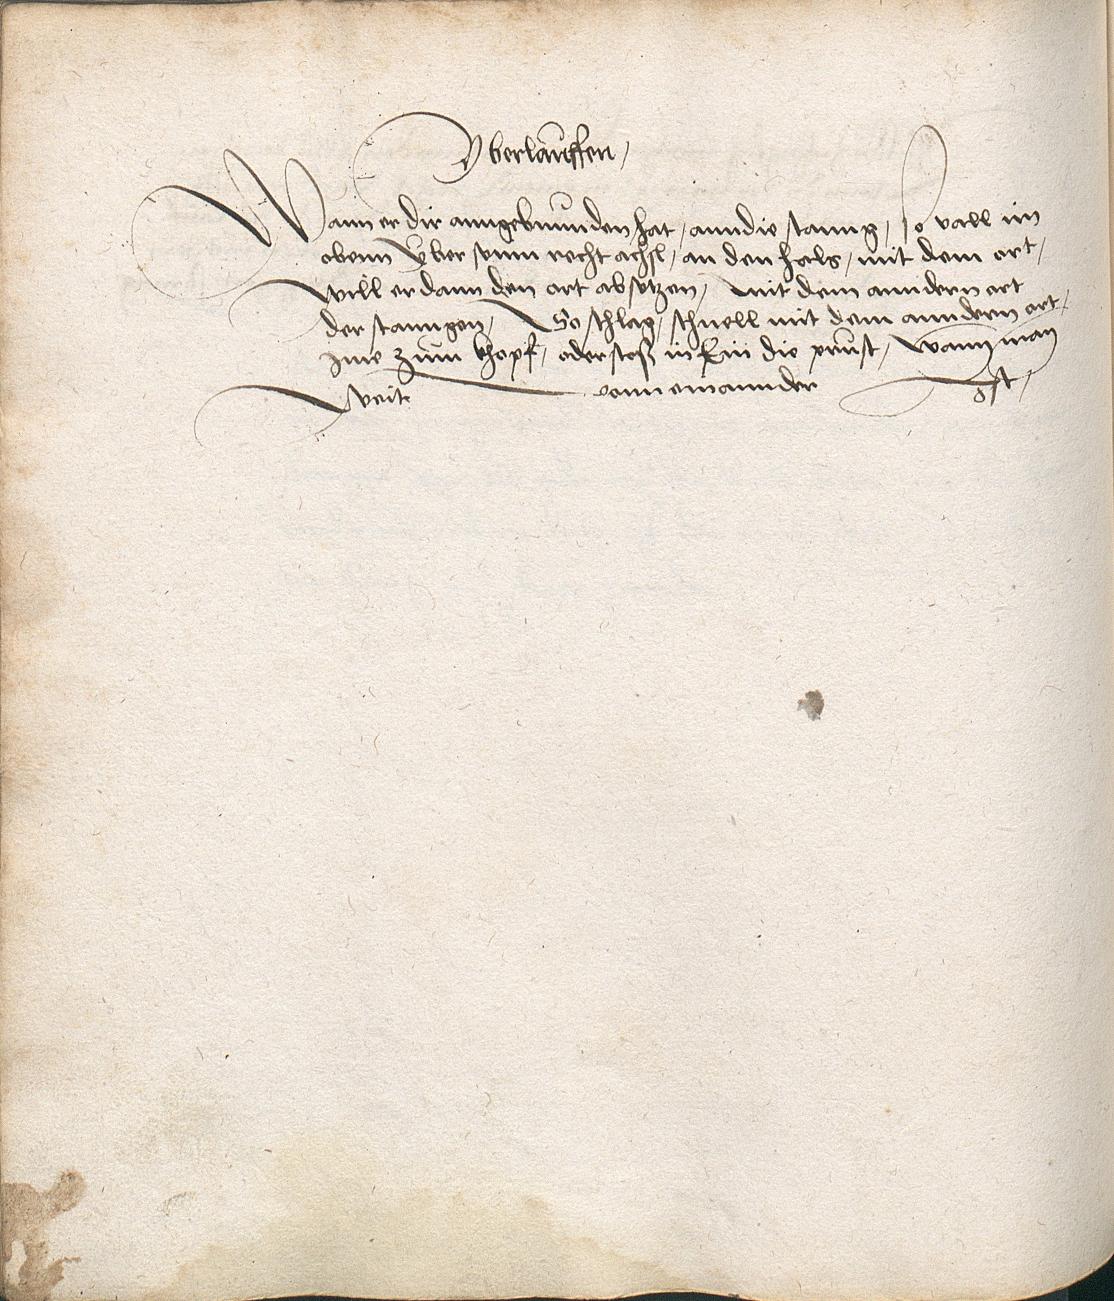 Yberlauffen /
Wann er dir anngebunnden hat / ann die stanng / so vall im
obenn Vber sein recht achsl / an den hals / mit dem ort /
Will er dann den ort absetzen / mit dem anndern ort
der stanngen / So schlag / schnell mit dem anndern ort /
Ime zum khopf / oder stoß in Ein die prust / Wann man
Weit vonn einannder Ist /